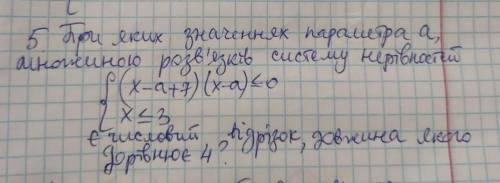 5 При яких значеннях параметра a,
множиною розв'язків систему нерівностей
(x-a+7)(x-a)≤0
x≤3
є числовий відрізок, довжина якого
дорівнює 4?